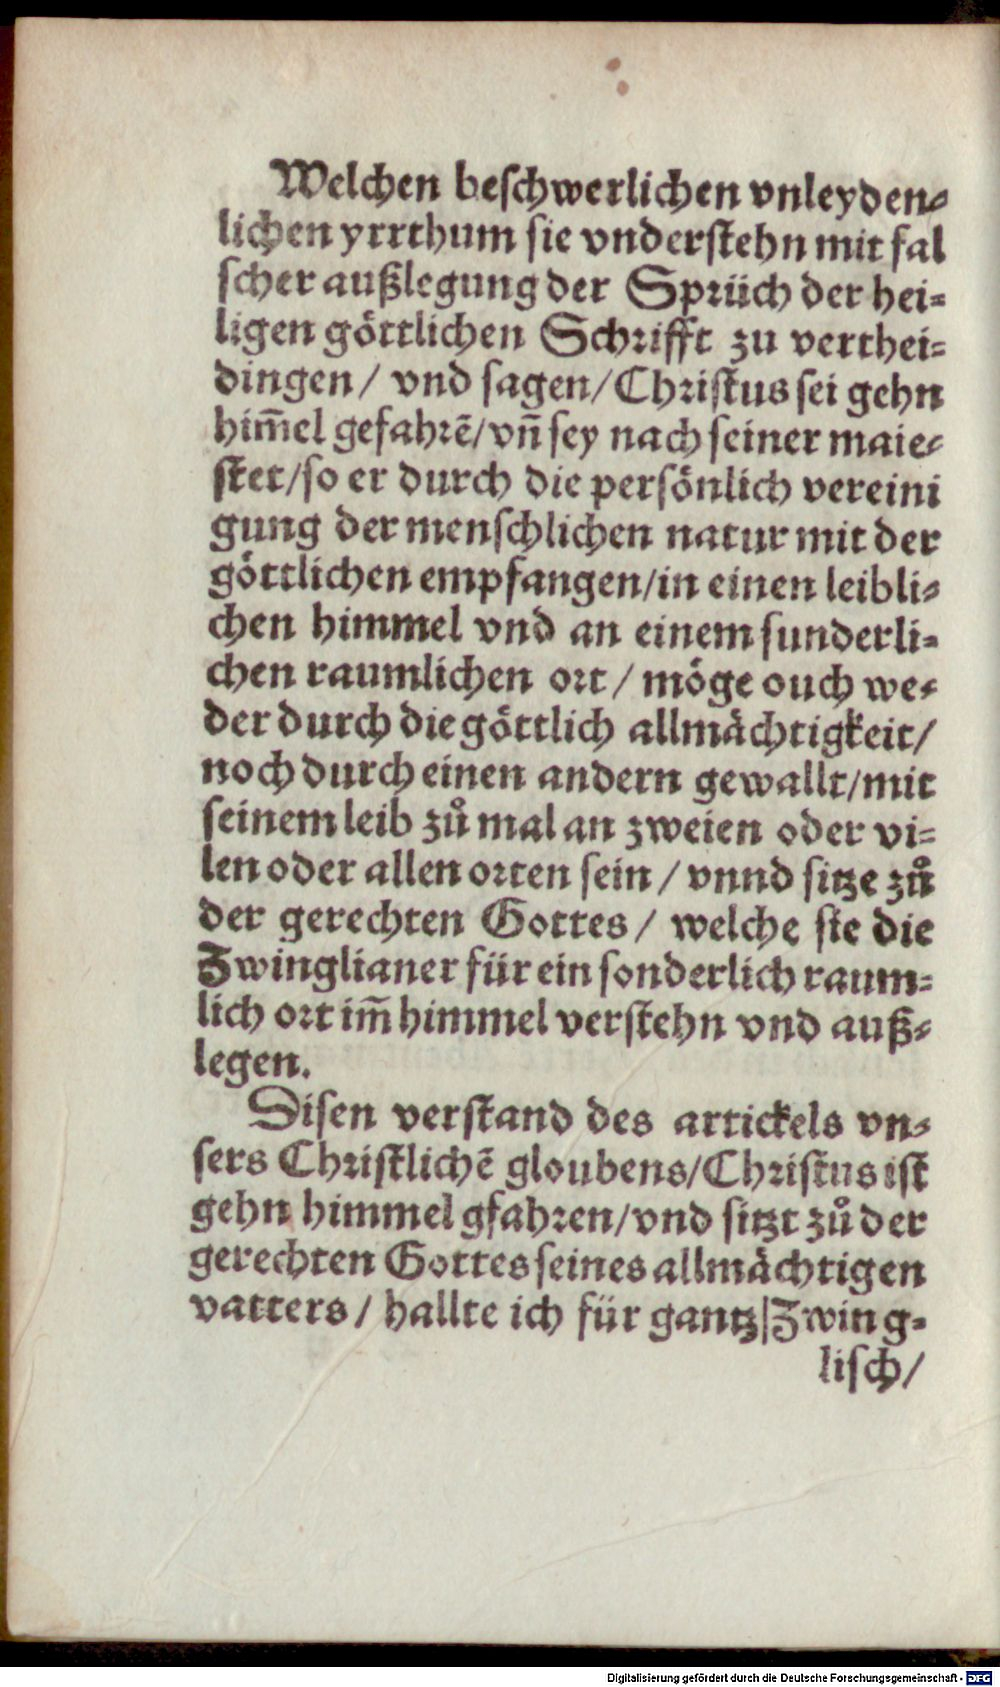 Welchen beschwerlichen vnleyden⸗
lichen yrrthum sie vnderstehn mit fal
scher außlegung der Sprüch der hei⸗
ligen göttlichen Schrifft zu verthei⸗
dingen/ vnd sagen/Christus sei gehn
him̄el gefahrē/vn̄ sey nach seiner maie⸗
stet/so er durch die persönlich vereini
gung der menschlichen natur mit der
göttlichen empfangen/in einen leibli⸗
chen himmel vnd an einem sunderli⸗
chen raumlichen ort/ möge ouch we⸗
der durch die göttlich allmächtigkeit/
noch durch einen andern gewallt/mit
seinem leib zů mal an zweien oder vi⸗
len oder allen orten sein/ vnnd sitze zů
der gerechten Gottes/ welche sie die
Zwinglianer für ein sonderlich raum⸗
lich ort im̄ himmel verstehn vnd auß⸗
legen.
Disen verstand des artickels vn⸗
sers Christlichē gloubens/Christus ist
gehn himmel gfahren/vnd sitzt zů der
gerechten Gottes seines allmächtigen
vatters/ hallte ich für gantz|Zwing⸗
lisch/
Digitalisierung gefördert durch die Deutsche Forschungsgemeinschaft - DFG